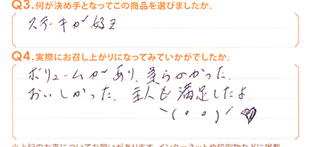 Q3.何が決め手となってこの商品を選びましたか。
ステーキが好き
Q4.実際にお召し上がりになってみていかがでしたか。
ボリュームがあり、柔らかかった。
おいしかった。主人も満足したよ